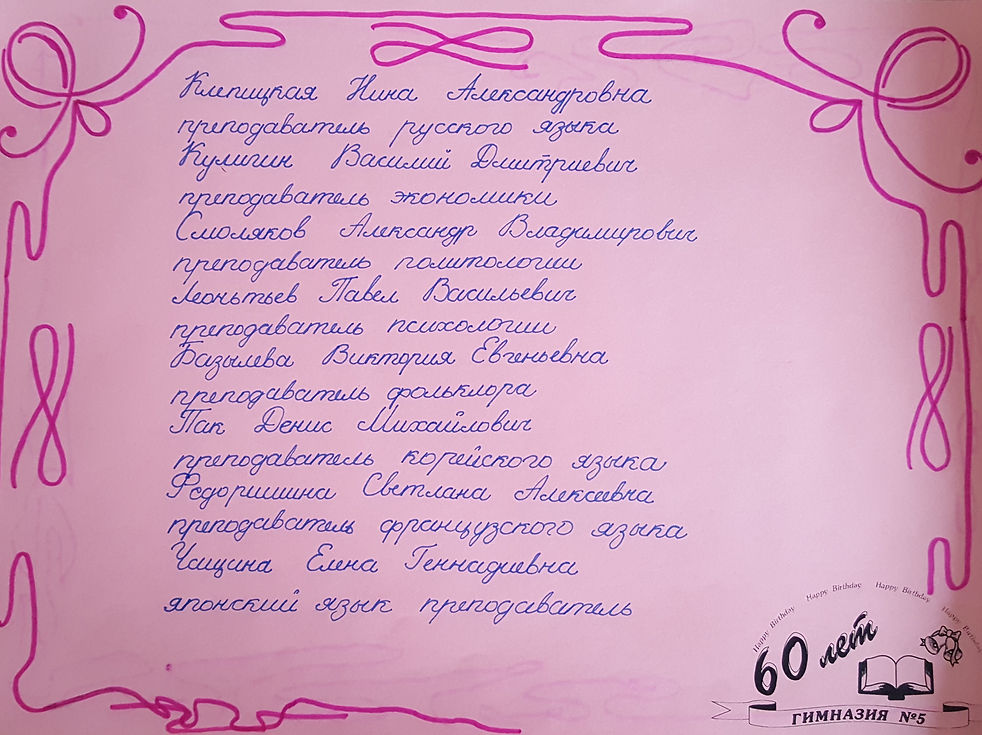 Клепицкая Нина Александровна
преподаватель русского языка
Кулигин Василий Дмитриевич
преподаватель экономики
Смоляков Александр Владимирович
преподаватель политологии
Леонтьев Павел Васильевич
преподаватель психологии
Базылева Виктория Евгеньевна
преподаватель фольклора
Пак Денис Михайлович
преподаватель корейского языка
Федоришина Светлана Алексеевна
преподаватель французского языка
Чащина Елена Геннадиевна
японский язык преподаватель
Happy Birthday Happy Birthday Happy Birthday Happy Birthday
60 лет
ГИМНАЗИЯ №5